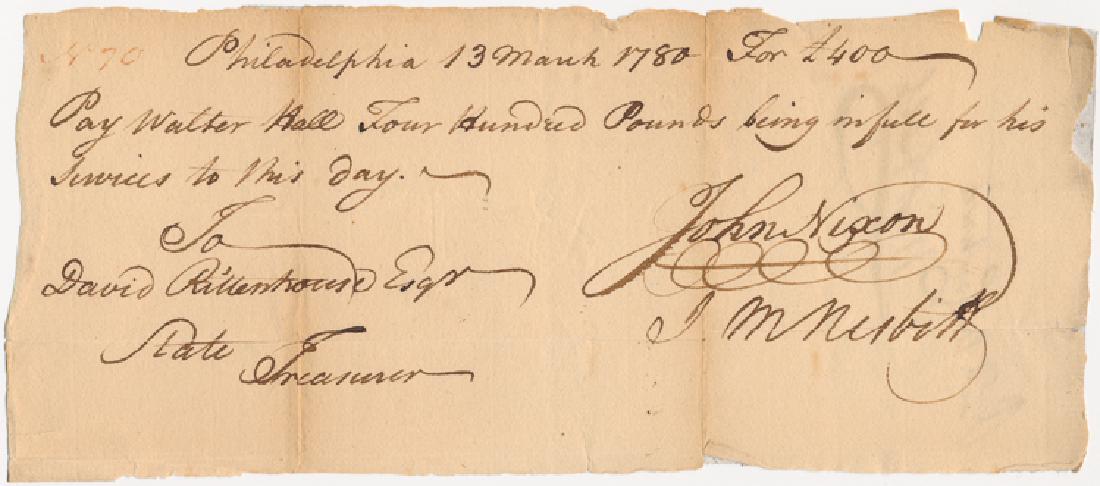 No 70 Philadelphia 13 March 1780 For £400
Pay Walter Hall Four Hundred Pounds being in full for his
Services to this day.
To
David Rittenhouse Esqr
State
Treasurer
John Nixon
J. M Nesbitt